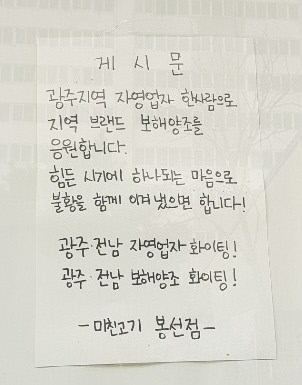 게 시 문
광주지역 자영업자 한사람으로
지역 브랜드 보해양조를
응원합니다.
힘든 시기에 하나되는 마음으로
불황을 함께 이겨냈으면 합니다!
광주·전남 자영업자 화이팅!
광주·전남 보해양조 화이팅!
-미친고기 봉선점-